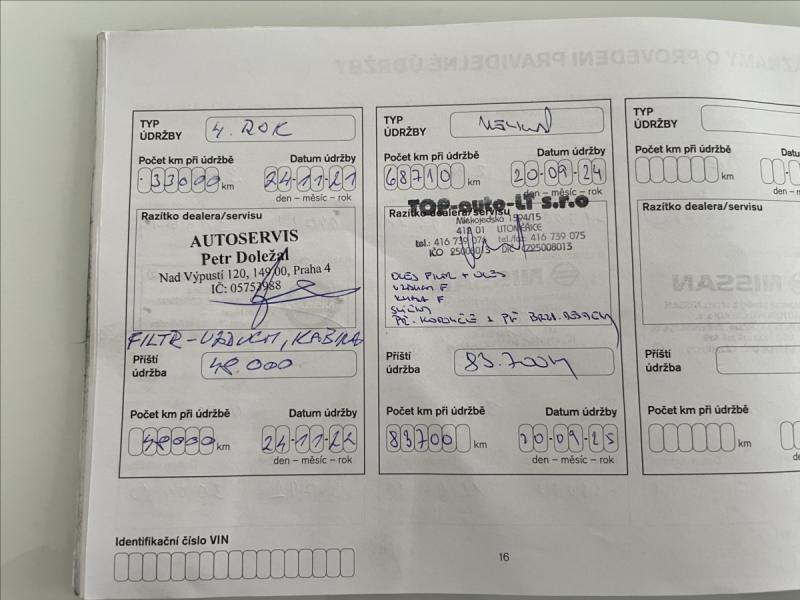 ZÁZNAMY O PROVEDENÍ PRAVIDELNÉ ÚDRŽBY
TYP
ÚDRŽBY
4. ROK
Počet km při údržbě
Datum údržby
33000 km
24-11-21
den – měsíc – rok
Razítko dealera/servisu
AUTOSERVIS
Petr Doležal
Nad Výpustí 120, 149 00, Praha 4
IČ: 05753988
FILTR-VZDUCH, KABINA
Příští
údržba
48.000
Počet km při údržbě
Datum údržby
48000 km
24-11-22
den – měsíc – rok
Identifikační číslo VIN
TYP
ÚDRŽBY
Počet km při údržbě
Datum údržby
68710 km
20-09-24
den – měsíc – rok
TOP-auto-LT s.r.o
Razítko dealera/servisu
Mlékojedská 1594/15
412 01 LITOMĚŘICE
tel.: 416 739 074 tel./fax: 416 739 075
IČO 25008013 DIČ CZ25008013
OLEJ FILTR + OLEJ
VZDUCH F
KABIN F
SVÍČKY
PŘ. KOTOUČE + PŘ BRZD. DESTIČKY
Příští
údržba
83.700
Počet km při údržbě
Datum údržby
83700 km
20-09-25
den – měsíc – rok
16
TYP
ÚDRŽBY
Počet km při údržbě
Datu
km
Razítko dealera/servisu
NISSAN
Příští
údržba
Počet km při údržbě
km